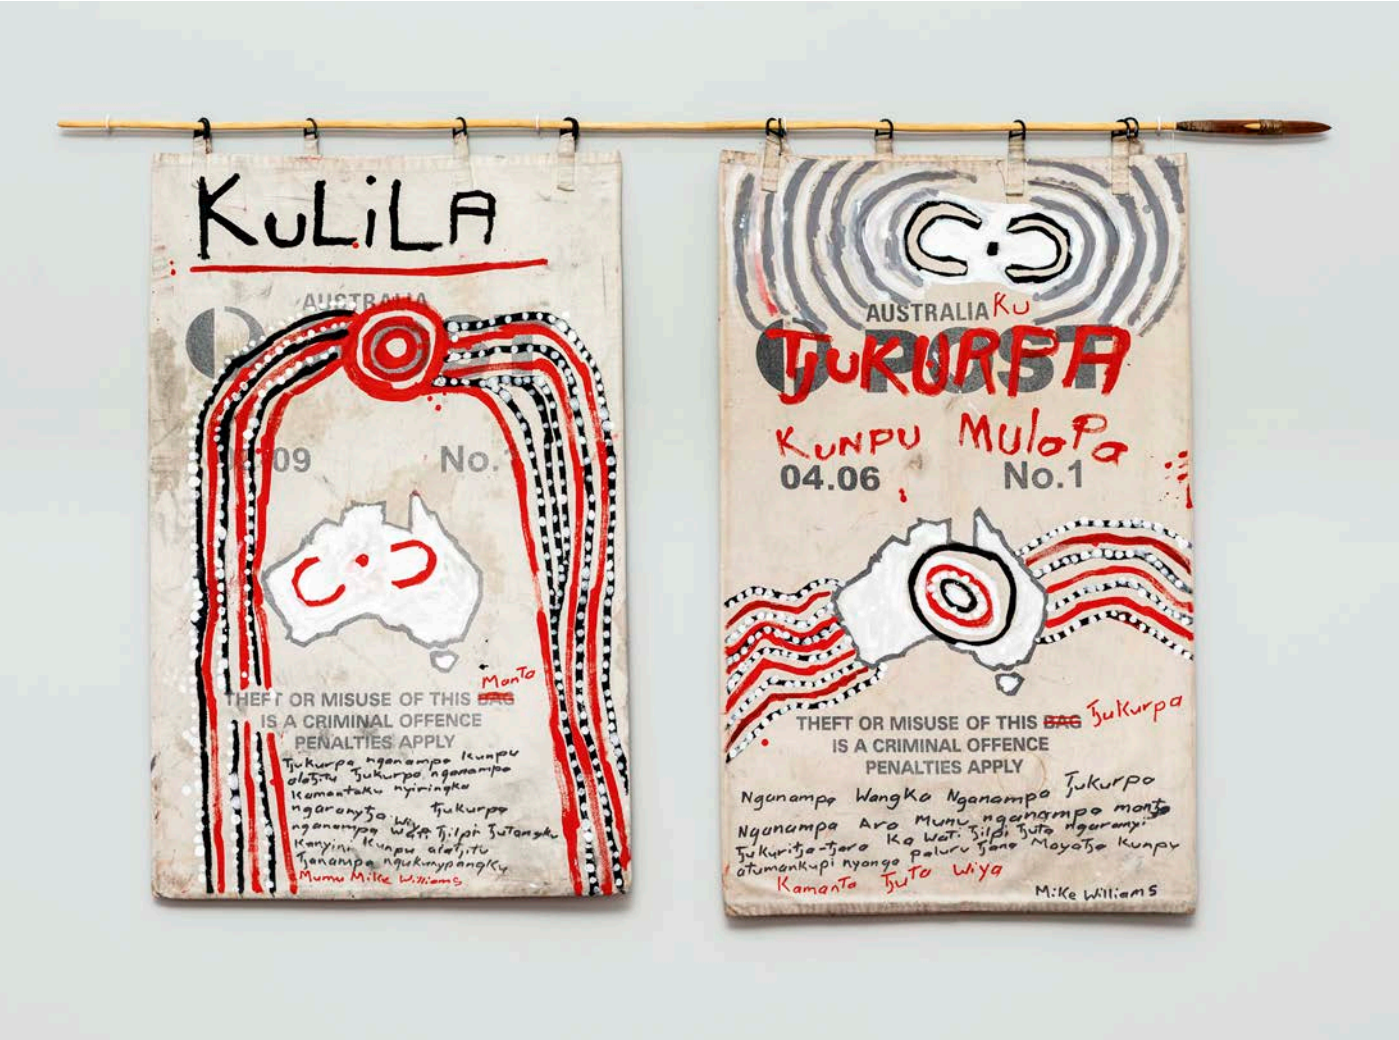 KuLiLA
AUSTRALIA
09 No.
Manta
THEFT OR MISUSE OF THIS BAG
IS A CRIMINAL OFFENCE
PENALTIES APPLY
Tjukurpa nganampa Kunpu
alatjitu Tjukurpa nganampa
Kamantaku nyiringka
ngaranytja wiya Tjukurpa
nganampa Tjilpi Tjutangku
Kanyini Kunpu alatjitu
Tjanampa ngukunypangku
Mumu Mike Williams
AUSTRALIA Ku
POST
TjuKURPA
KUNPU MulaPa
04.06 No.1
THEFT OR MISUSE OF THIS BAG Tjukurpa
IS A CRIMINAL OFFENCE
PENALTIES APPLY
Nganampa WangKa Nganampa Tjukurpa
Nganampa Ara Munu nganampa manta
Tjukuritja-tjara Ka Wati Tjilpi Tjuta ngaranyi
atumankupi nyanga paluru Tjana Mayatja Kunpu
Kamanta Tjuta wiya
Mike Williams